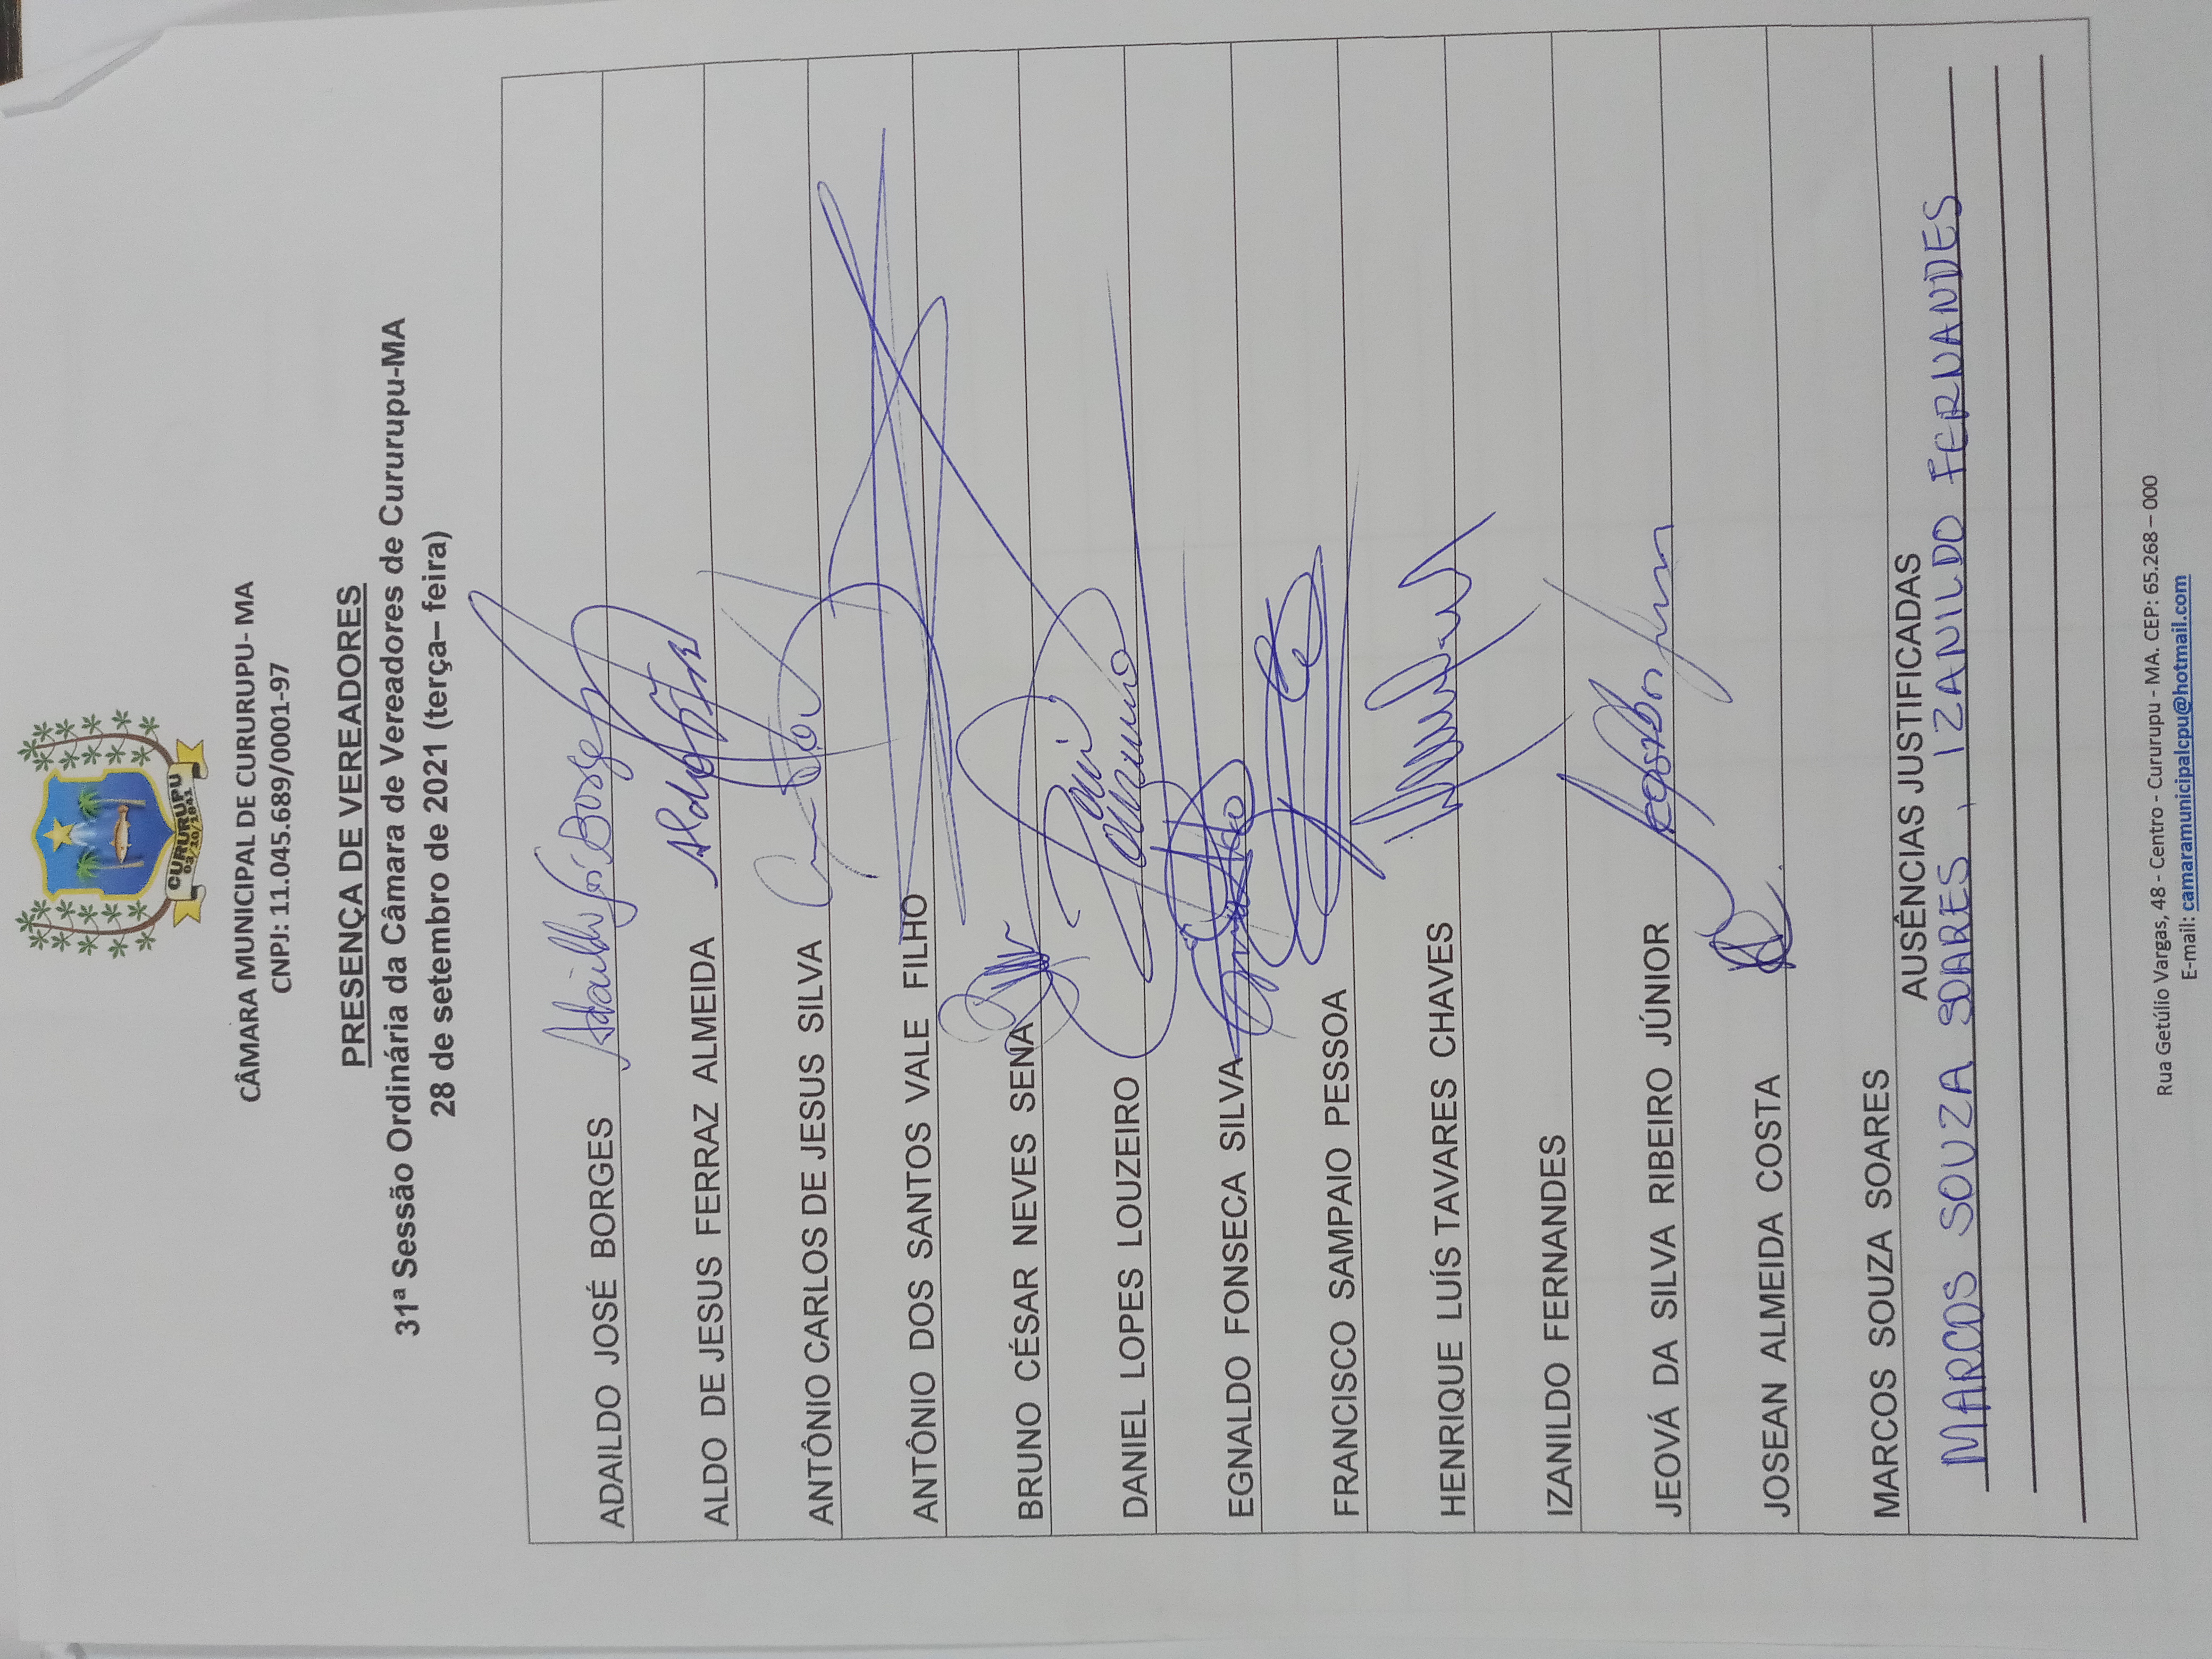 CURURUPU
03/10/1841
CÂMARA MUNICIPAL DE CURURUPU- MA
CNPJ: 11.045.689/0001-97
PRESENÇA DE VEREADORES
31ª Sessão Ordinária da Câmara de Vereadores de Cururupu-MA
28 de setembro de 2021 (terça– feira)
ADAILDO JOSÉ BORGES Adaildo José Borges
ALDO DE JESUS FERRAZ ALMEIDA Aldo
ANTÔNIO CARLOS DE JESUS SILVA
ANTÔNIO DOS SANTOS VALE FILHO
BRUNO CÉSAR NEVES SENA
DANIEL LOPES LOUZEIRO
EGNALDO FONSECA SILVA
FRANCISCO SAMPAIO PESSOA
HENRIQUE LUÍS TAVARES CHAVES
IZANILDO FERNANDES
JEOVÁ DA SILVA RIBEIRO JÚNIOR
JOSEAN ALMEIDA COSTA
MARCOS SOUZA SOARES
AUSÊNCIAS JUSTIFICADAS
MARCOS SOUZA SOARES, IZANILDO FERNANDES
Rua Getúlio Vargas, 48 - Centro - Cururupu - MA. CEP: 65.268 – 000
E-mail: camaramunicipalcpu@hotmail.com